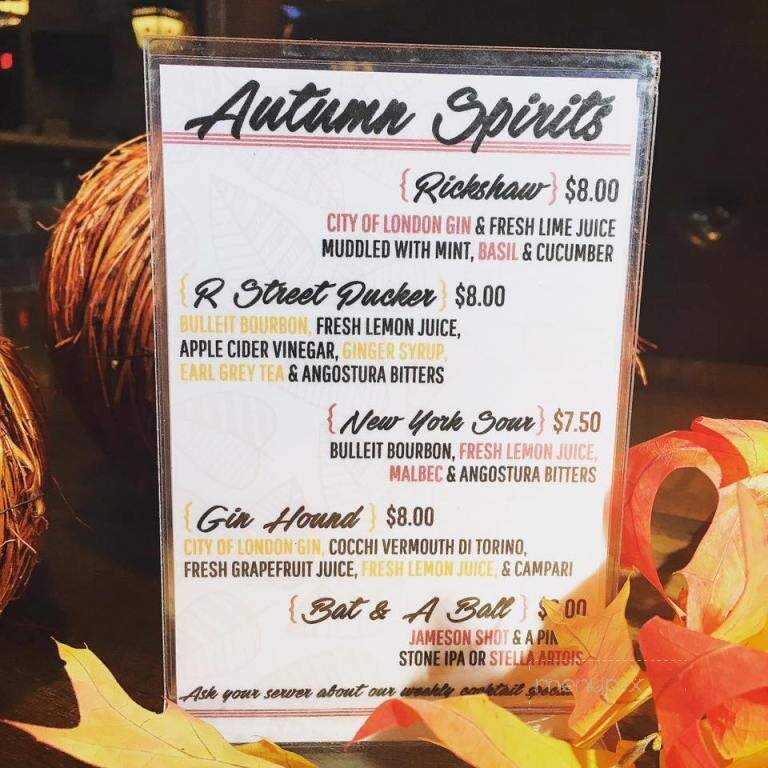 Autumn Spirits
{ Rickshaw } $8.00
CITY OF LONDON GIN & FRESH LIME JUICE
MUDDLED WITH MINT, BASIL & CUCUMBER
{ R Street Pucker } $8.00
BULLEIT BOURBON, FRESH LEMON JUICE,
APPLE CIDER VINEGAR, GINGER SYRUP,
EARL GREY TEA & ANGOSTURA BITTERS
{ New York Sour } $7.50
BULLEIT BOURBON, FRESH LEMON JUICE,
MALBEC & ANGOSTURA BITTERS
{ Gin Hound } $8.00
CITY OF LONDON GIN, COCCHI VERMOUTH DI TORINO,
FRESH GRAPEFRUIT JUICE, FRESH LEMON JUICE, & CAMPARI
{ Bat & A Ball }
JAMESON SHOT & A
STONE IPA OR STELLA ARTOIS
Ask your server about our weekly cocktail